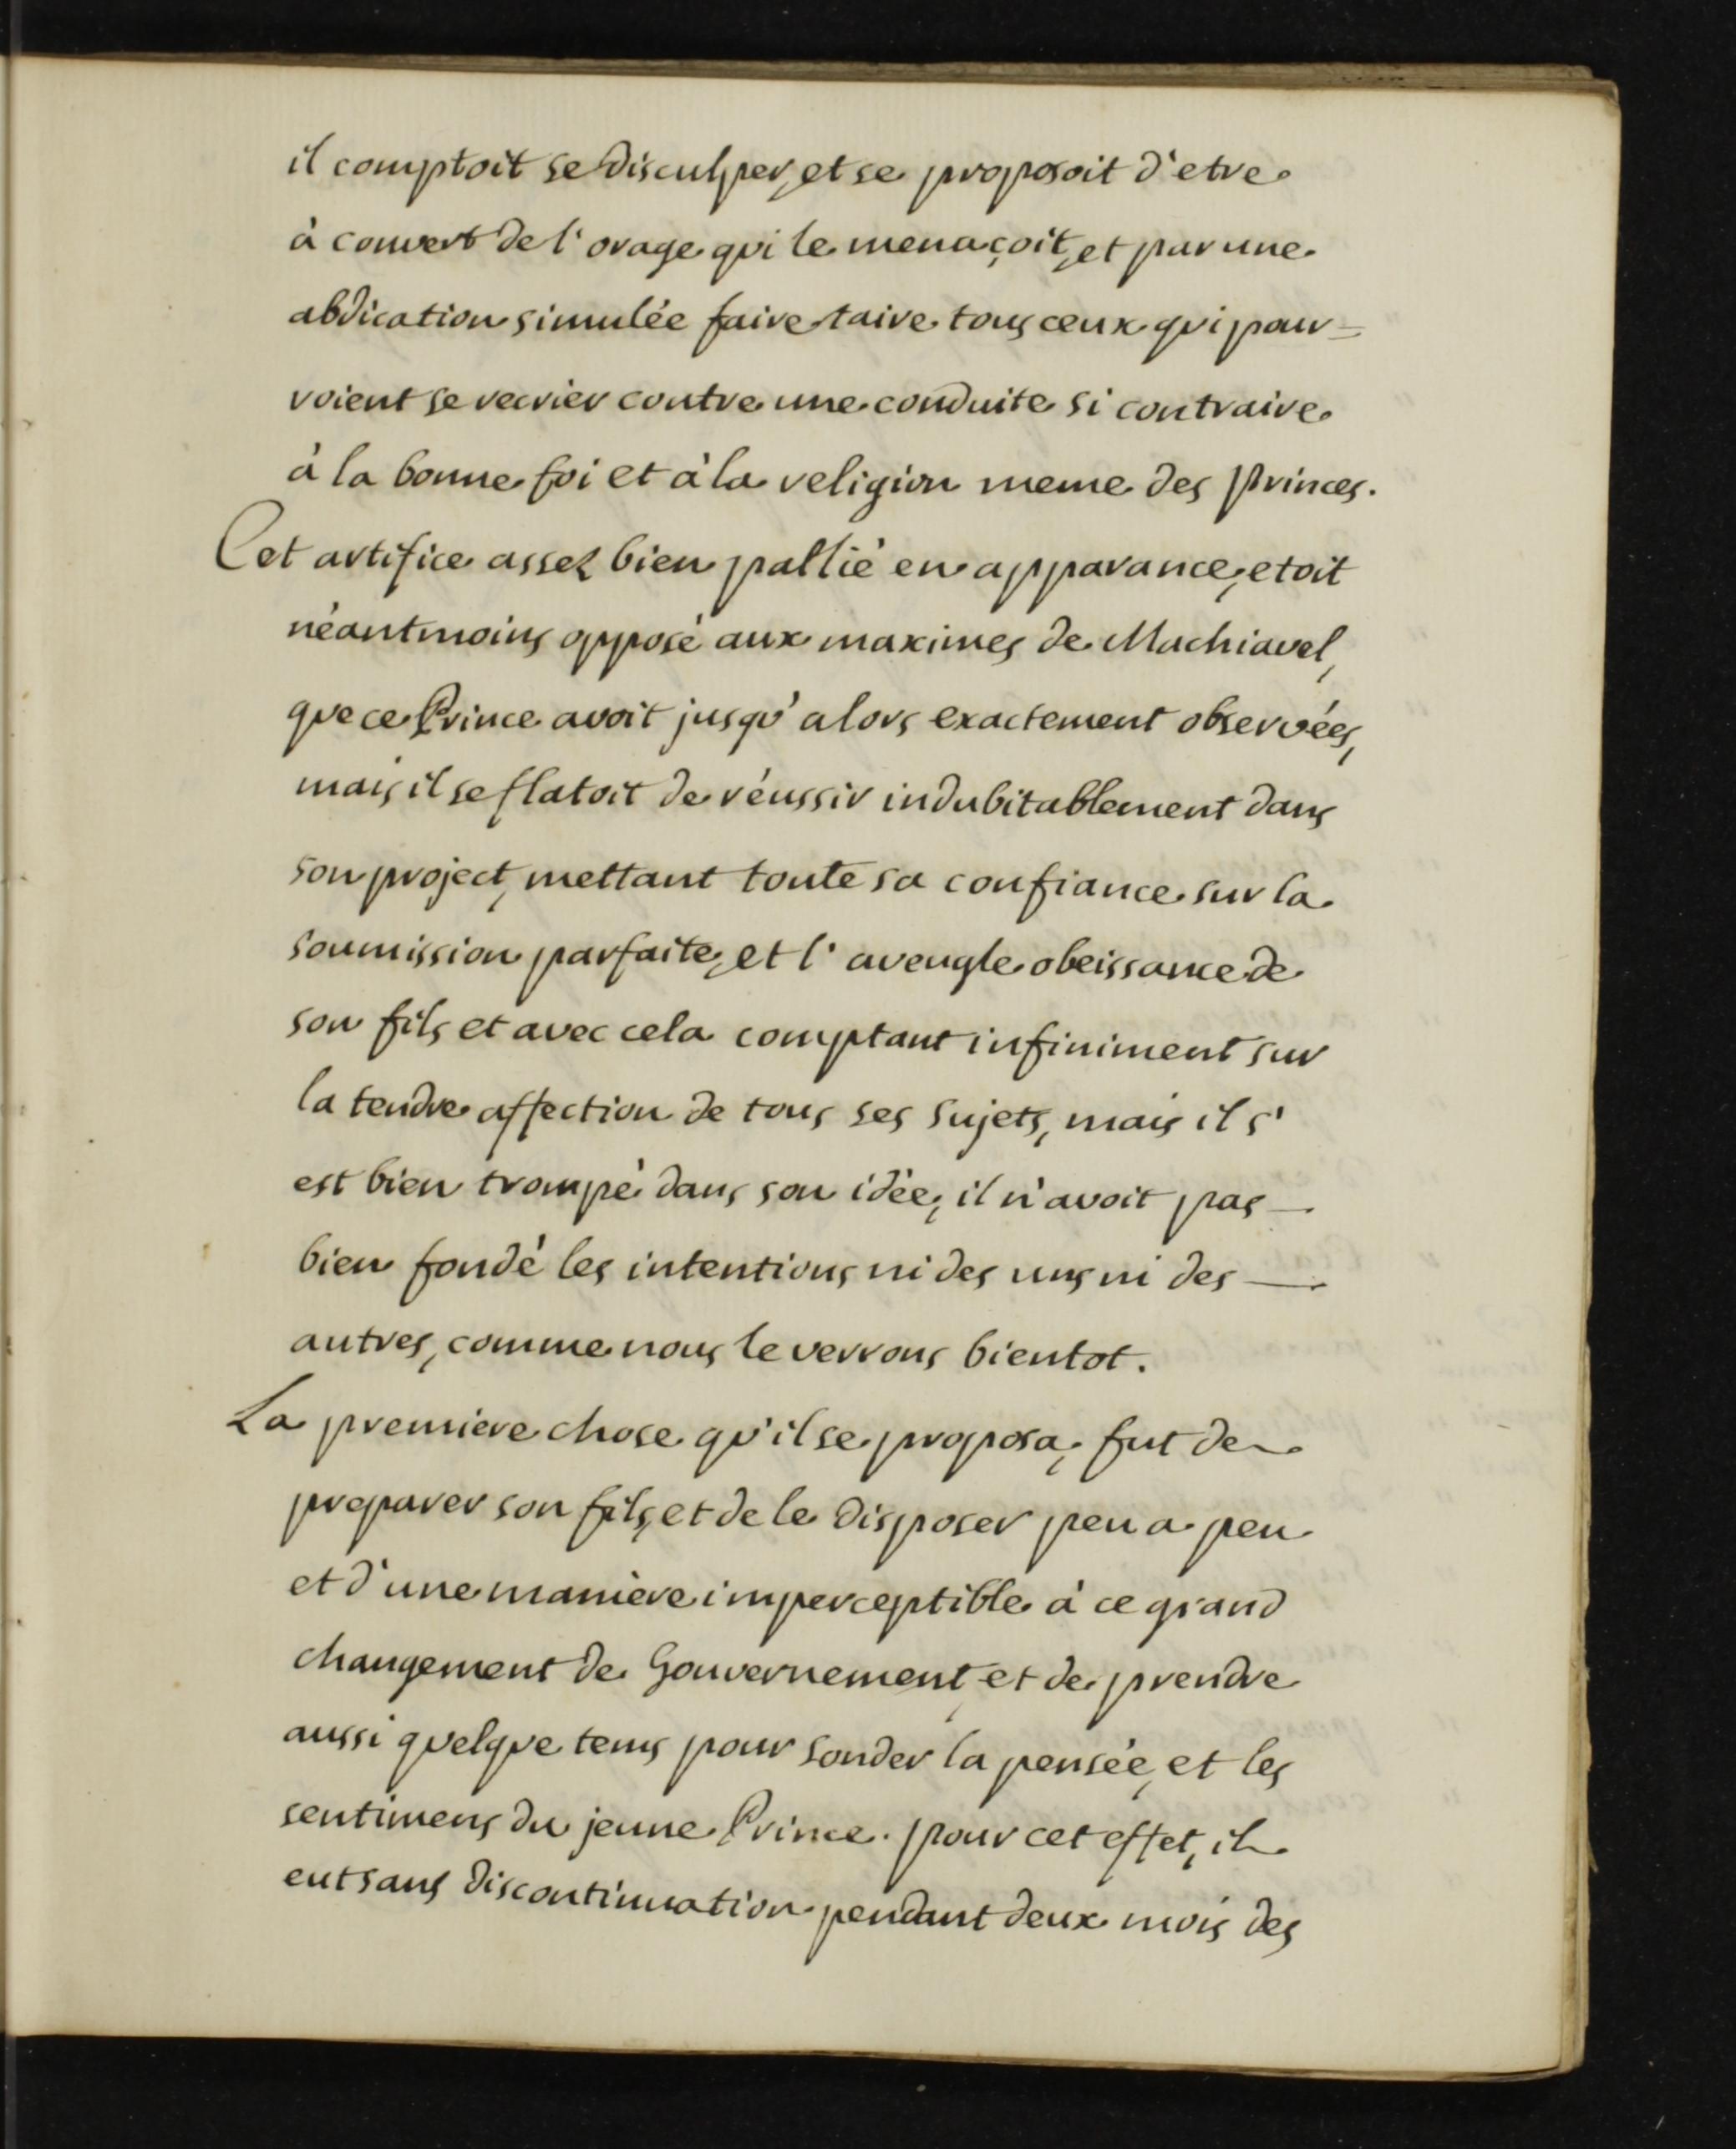 il comptoit se disculper, et se proposoit d'etre
à couvert de l'orage qui le menaçoit, et par une
abdication simulée faire taire tous ceux qui pour=
roient se recrier contre une conduite si contraire
à la bonne foi et à la religion meme des Princes.
Cet artifice assez bien pallié en apparance, etoit
néantmoins opposé aux maximes de Machiavel,
que ce Prince avoit jusqu'alors exactement observées,
mais il se flatoit de réussir indubitablement dans
son project, mettant toute sa confiance sur la
soumission parfaite, et l'aveugle obeissance de
son fils et avec cela comptant infiniment sur
la tendre affection de tous ses sujets, mais il s'
est bien trompé dans son idée, il n'avoit pas —
bien fondé les intentions ni des uns ni des —
autres, comme nous le verrons bientot.
La premiere chose qu'il se proposa, fut de
preparer son fils, et de le disposer peu a peu
et d'une manière imperceptible à ce grand
changement de Gouvernement, et de prendre
aussi quelque tems pour sonder la pensée, et les
sentimens du jeune Prince. pour cet effet, il
eut sans discontinuation pendant deux mois des